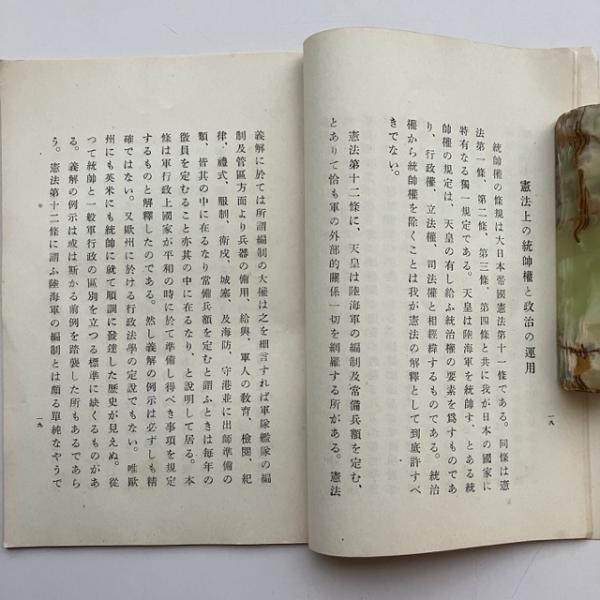 憲法上の統帥權と政治の運用
統帥權の條規は大日本帝國憲法第十一條である。同條は憲
法第一條、第二條、第三條、第四條と共に我が日本の國家に
特有なる獨一規定である。天皇は陸海軍を統帥す、とある統
帥權の規定は、天皇の有し給ふ統治權の要素を爲すものであ
り、行政權、立法權、司法權と相經緯するものである。統治
權から統帥權を除くことは我が憲法の解釋として到底許すべ
きでない。
憲法第十二條に、天皇は陸海軍の編制及常備兵額を定む、
とありて恰も軍の外部的關係一切を網羅する所がある。憲法
一八
義解に於ては所謂編制の大權は之を細言すれば軍隊艦隊の編
制及管區方面より兵器の備用、給與、軍人の敎育、檢閱、紀
律、禮式、服制、衛戍、城塞、及海防、守港並に出師準備の
類、皆其の中に在るなり常備兵額を定むと謂ふときは毎年の
徵員を定むること亦其の中に在るなり、と說明して居る。本
條は軍行政上國家が平和の時に於て準備し得べき事項を規定
するものと解釋したのである。然し義解の例示は必ずしも精
確ではない。又歐州に於ける行政法學の定說でもない。唯歐
州にも英米にも統帥に就て順調に發達した歷史が見えぬ。從
つて統帥と一般軍行政の區別を立つる標準に缺くるものがあ
る。義解の例示は或は斯かる前例を踏襲した所もあるであら
う。憲法第十二條に謂ふ陸海軍の編制とは頗る單純なやうで
一九